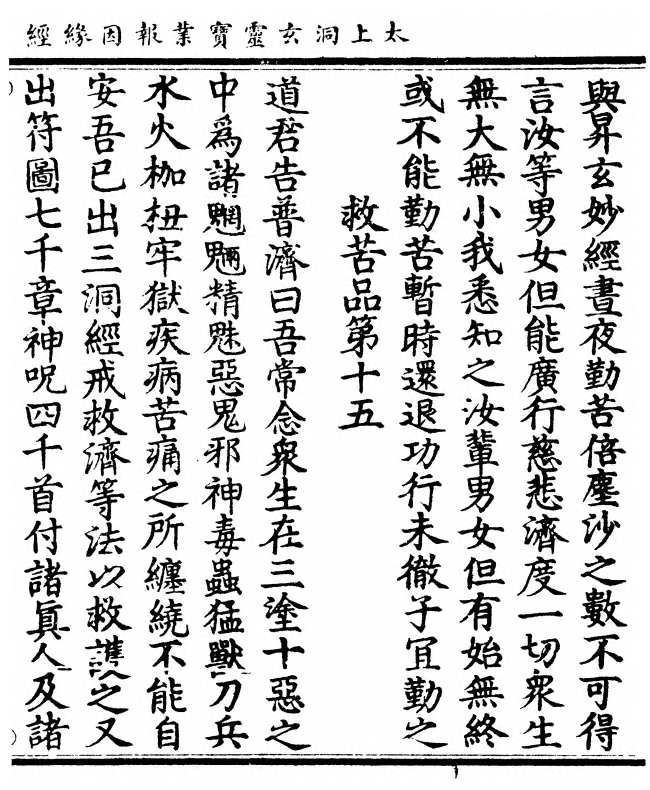 太上洞玄靈寶業報因緣經
與昇玄妙經晝夜勤苦倍塵沙之數不可得
言汝等男女但能廣行慈悲濟度一切衆生
無大無小我悉知之汝輩男女但有始無終
或不能勤苦暫時還退功行未徹子宜勤之
救苦品第十五
道君告普濟曰吾常念衆生在三塗十惡之
中爲諸魍魎精魅惡鬼邪神毒蟲猛獸刀兵
水火枷杻牢獄疾病苦痛之所纏繞不能自
安吾已出三洞經戒救濟等法以救護之又
出符圖七千章神呪四千首付諸眞人及諸